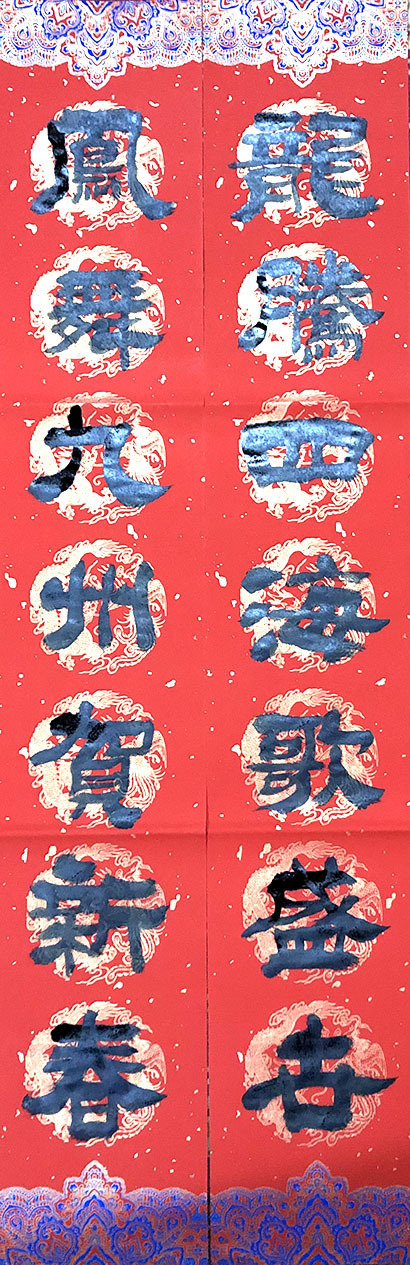 龍騰四海歌盛世
鳳舞九州賀新春